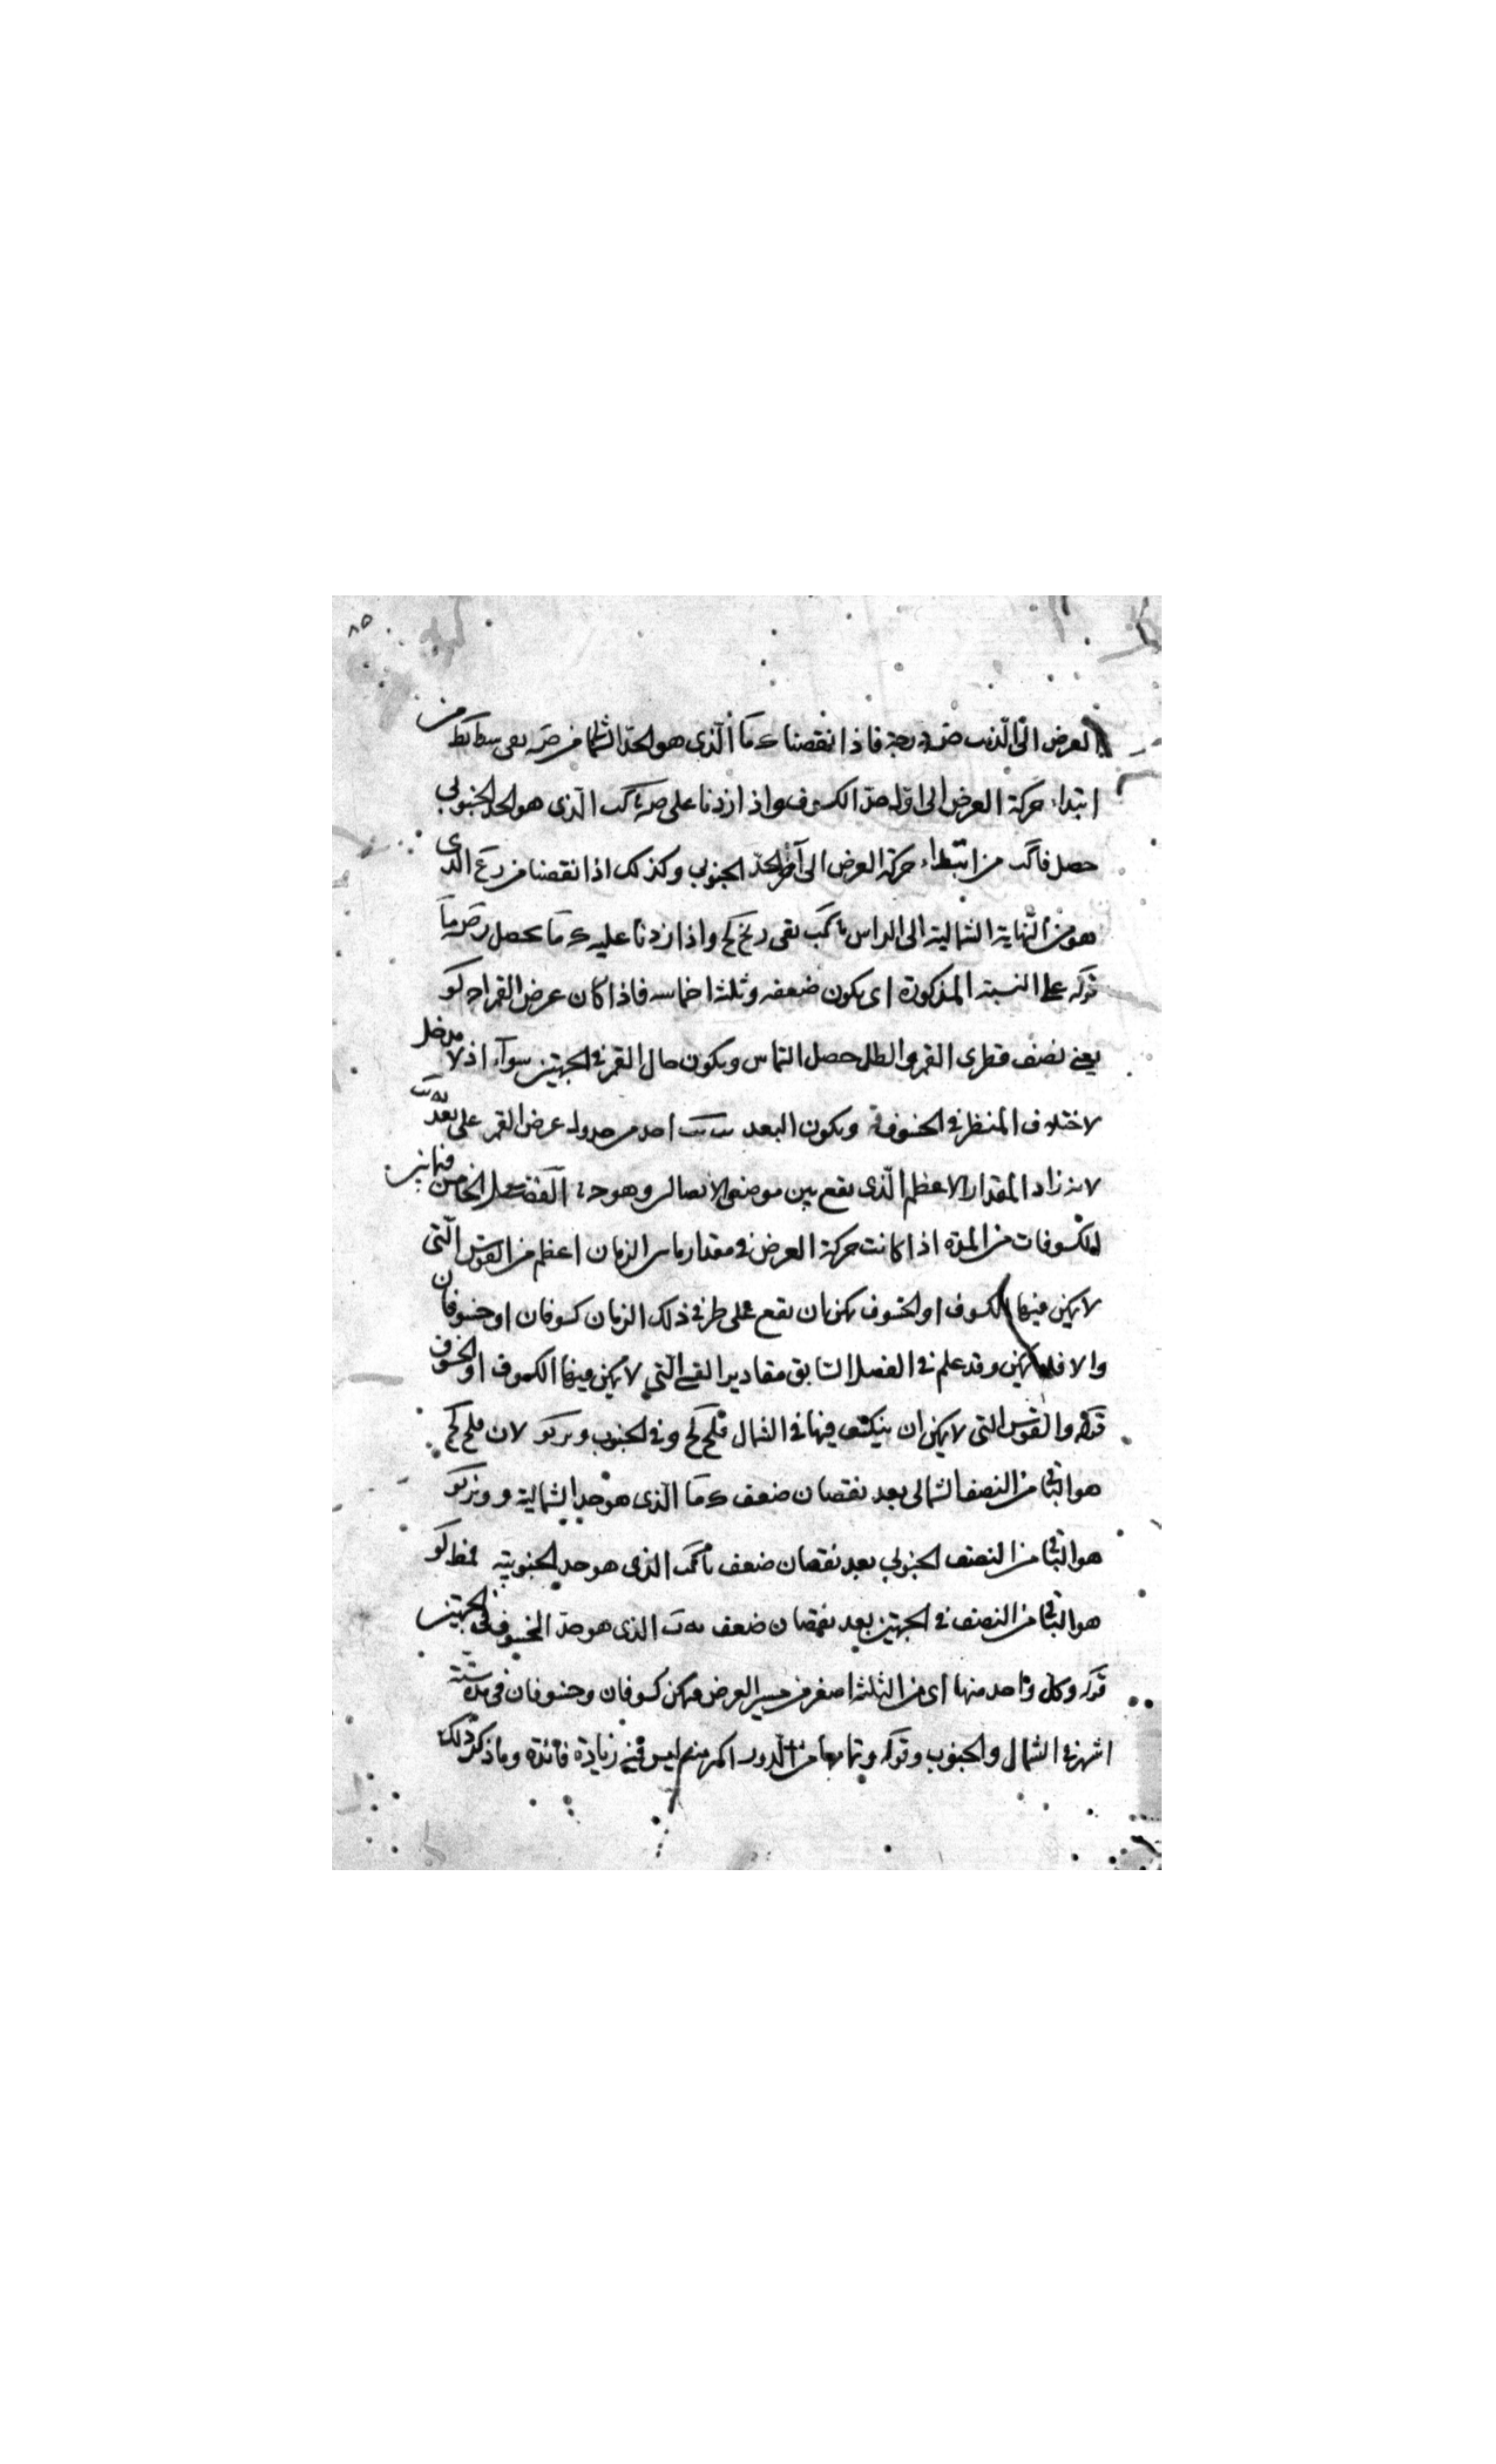 ٨٥
العرض الى الذنب ص درجة فاذا نقصنا ك ما الذى هو الحد الشمالى من ص بقى سط يط من
ابتداء حركة العرض الى اول حد الكسوف واذا زدنا على ص يا كب الذى هو الحد الجنوبى
حصل قا كب من ابتداء حركة العرض الى آخر الحد الجنوبى وكذلك اذا نقصنا من رع الذى
هو من النهاية الشمالية الى الراس يا كب بقى رنح لح واذا زدنا عليه ك ما يحصل رص ما
قوله على النسبة المذكورة اى يكون ضعفه وثلثة اخماسه فاذا كان عرض القمر ا ح كو
يعنى نصف قطرى القمر والظل حصل التماس ويكون حال القمر فى الجهتين سواء اذ لا مدخل
لاختلاف المنظر فى الخسوف قوله ويكون البعد احد من جدول عرض القمر على بعد
لانه زاد المقدار الاعظم الذى يقع بين موضعى الاتصال وهو الفصل الخامس فيما بين
الكسوفات من المدة اذا كانت حركة العرض فى مقدار ما من الزمان اعظم من القوس التى
لا يمكن فيها الكسوف او الخسوف يمكن ان يقع على طرفى ذلك الزمان كسوفان او خسوفان
والا فلا يمكن وقد علم فى الفصل السابق مقادير القسى التى لا يمكن فيها الكسوف او الخسوف
قوله والقوس التى لا يمكن ان ينكسف فيها فى الشمال قلح لح وفى الجنوب كو لان قلح لح
هو الباقى من النصف الشمالى بعد نقصان ضعف ك ما الذى هو حد الشمالية و كو
هو الباقى من النصف الجنوبى بعد نقصان ضعف يا كب الذى هو حد الجنوبية
هو الباقى من النصف فى الجهتين بعد نقصان ضعف الذى هو حد الخسوف فى الجهتين
قوله وكل واحد منها اى من الثلثة اصغر من مسير العرض فيمكن كسوفان وخسوفان فى مدة ستة
اشهر فى الشمال والجنوب وقوله وتمامها من الدور اكبر منه ليس فيه زيادة فائدة وما ذكر ذلك